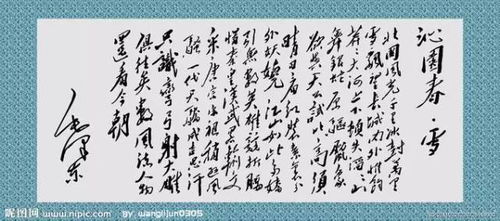 沁园春·雪
北国风光千里冰封万里
雪飘望长城内外惟余
莽莽大河上下顿失滔滔山
舞银蛇原驱腊象
欲与天公试比高须
晴日看红装素裹分
外妖娆江山如此多娇
引无数英雄竞折腰
惜秦皇汉武略输文
采唐宗宋祖稍逊风
骚一代天骄成吉思汗
只识弯弓射大雕
俱往矣数风流人物
还看今朝
毛泽东
昵图网 www.nipic.com By wanglijun0305